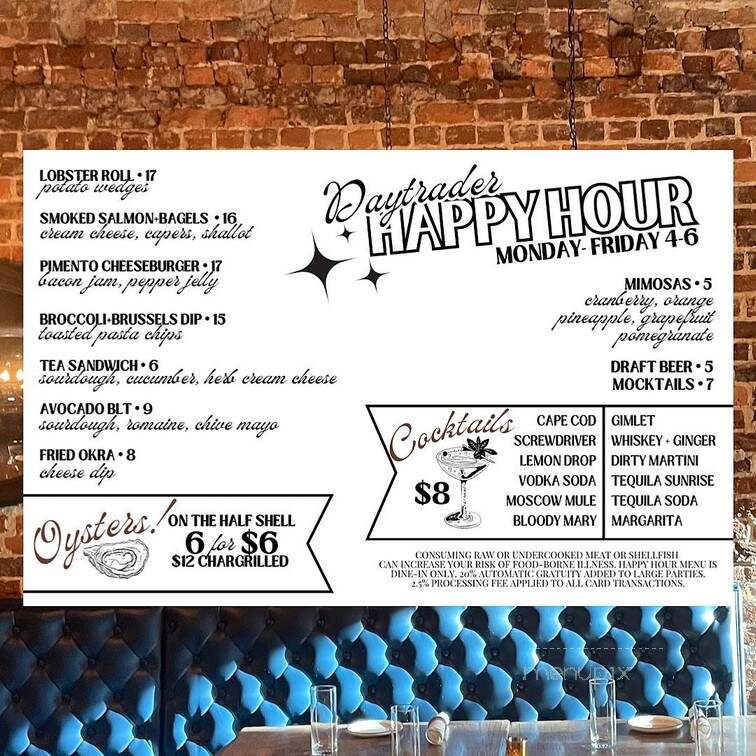 LOBSTER ROLL • 17
potato wedges
SMOKED SALMON+BAGELS • 16
cream cheese, capers, shallot
PIMENTO CHEESEBURGER • 17
bacon jam, pepper jelly
BROCCOLI+BRUSSELS DIP • 15
toasted pasta chips
TEA SANDWICH • 6
sourdough, cucumber, herb cream cheese
AVOCADO BLT • 9
sourdough, romaine, chive mayo
FRIED OKRA • 8
cheese dip
Oysters!
ON THE HALF SHELL
6 for $6
$12 CHARGRILLED
Daytrader
HAPPY HOUR
MONDAY- FRIDAY 4-6
MIMOSAS • 5
cranberry, orange
pineapple, grapefruit
pomegranate
DRAFT BEER • 5
MOCKTAILS • 7
Cocktails
$8
CAPE COD
SCREWDRIVER
LEMON DROP
VODKA SODA
MOSCOW MULE
BLOODY MARY
GIMLET
WHISKEY + GINGER
DIRTY MARTINI
TEQUILA SUNRISE
TEQUILA SODA
MARGARITA
CONSUMING RAW OR UNDERCOOKED MEAT OR SHELLFISH
CAN INCREASE YOUR RISK OF FOOD-BORNE ILLNESS. HAPPY HOUR MENU IS
DINE-IN ONLY. 20% AUTOMATIC GRATUITY ADDED TO LARGE PARTIES.
2.5% PROCESSING FEE APPLIED TO ALL CARD TRANSACTIONS.
menupix